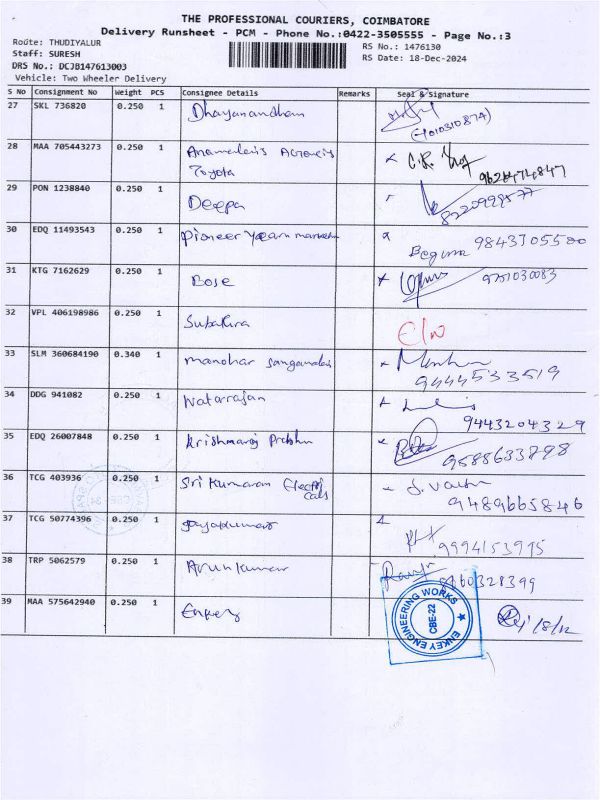 THE PROFESSIONAL COURIERS, COIMBATORE
Delivery Runsheet - PCM - Phone No.:0422-3505555 - Page No.:3
Route: THUDIYALUR
RS No.: 1476130
Staff: SURESH
RS Date: 18-Dec-2024
DRS No.: DCJB147613003
Vehicle: Two Wheeler Delivery
S No Consignment No Weight PCS Consignee Details Remarks Seal & Signature
27 SKL 736820 0.250 1 Dhayanandham
28 MAA 705443273 0.250 1 Anamalais Agencies
Toyota
29 PON 1238840 0.250 1 Deepa
30 EDQ 11493543 0.250 1 Pioneer Begum 9843305500
31 KTG 7162629 0.250 1 Bose
32 VPL 406198986 0.250 1
33 SLM 360684190 0.340 1 manohar 9444533519
34 DDG 941082 0.250 1 Natarrajan 9443204329
35 EDQ 26007848 0.250 1 Krishnaraj Prabhu 9588633898
36 TCG 403936 0.250 1 Sri Kumaran Electri
cals 9489665846
37 TCG 50774396 0.250 1 9994153995
38 TRP 5062579 0.250 1 Arunkumar
39 MAA 575642940 0.250 1
ENKEY ENGINEERING WORKS
CBE-22